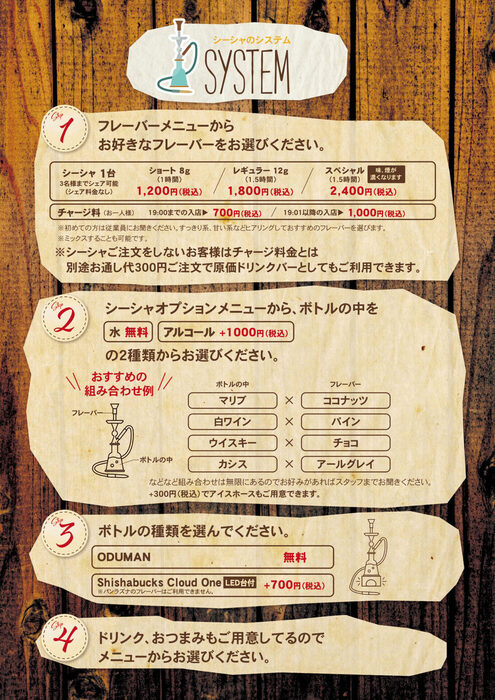 シーシャのシステム
SYSTEM
1
フレーバーメニューから
お好きなフレーバーをお選びください。
シーシャ 1台
3名様までシェア可能
(シェア料金なし)
ショート 8g
(1時間)
1,200円(税込)
レギュラー 12g
(1.5時間)
1,800円(税込)
スペシャル
(1.5時間)
味、煙が
濃くなります
2,400円(税込)
チャージ料(お一人様) 19:00までの入店▶ 700円(税込) / 19:01以降の入店▶ 1,000円(税込)
※初めての方は従業員にお聞きください。すっきり系、甘い系などヒアリングしておすすめのフレーバーを選びます。
※ミックスすることも可能です。
※シーシャご注文をしないお客様はチャージ料金とは
別途お通し代300円ご注文で原価ドリンクバーとしてもご利用できます。
2
シーシャオプションメニューから、ボトルの中を
水 無料 アルコール +1000円(税込)
の2種類からお選びください。
おすすめの
組み合わせ例
フレーバー
ボトルの中
ボトルの中 フレーバー
マリブ × ココナッツ
白ワイン × パイン
ウイスキー × チョコ
カシス × アールグレイ
などなど組み合わせは無限にあるのでお好みがあればスタッフまでお聞きください。
+300円(税込)でアイスホースもご用意できます。
3
ボトルの種類を選んでください。
ODUMAN 無料
Shishabucks Cloud One LED台付 +700円(税込)
※パンラズナのフレーバーはご利用できません。
4
ドリンク、おつまみもご用意してるので
メニューからお選びください。